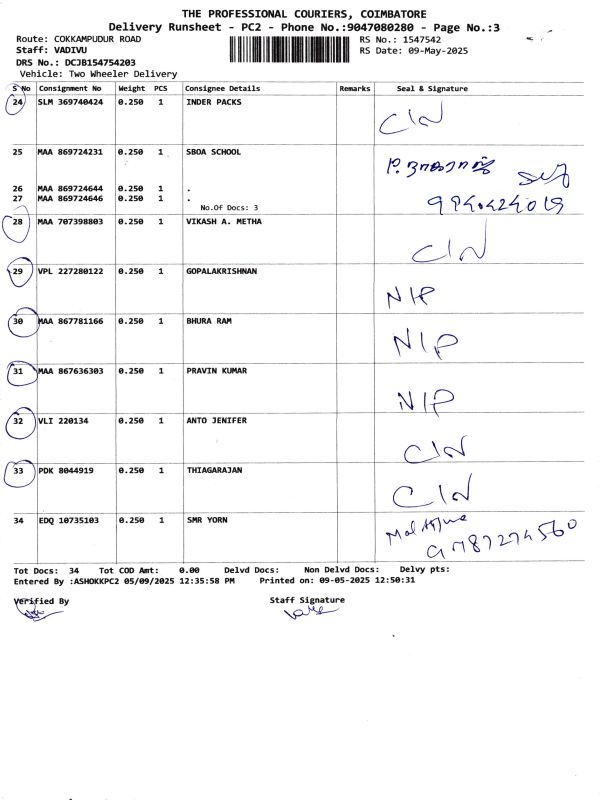 THE PROFESSIONAL COURIERS, COIMBATORE
Delivery Runsheet - PC2 - Phone No.:9047080280 - Page No.:3
Route: COKKAMPUDUR ROAD RS No.: 1547542
Staff: VADIVU RS Date: 09-May-2025
DRS No.: DCJB154754203
Vehicle: Two Wheeler Delivery
S No Consignment No Weight PCS Consignee Details Remarks Seal & Signature
24 SLM 369740424 0.250 1 INDER PACKS
C/N
25 MAA 869724231 0.250 1 SBOA SCHOOL
P. நாகராஜ்
26 MAA 869724644 0.250 1 .
27 MAA 869724646 0.250 1 .
No.Of Docs: 3
28 MAA 707398803 0.250 1 VIKASH A. METHA
C/N
29 VPL 227280122 0.250 1 GOPALAKRISHNAN
N/P
30 MAA 867781166 0.250 1 BHURA RAM
N/P
31 MAA 867636303 0.250 1 PRAVIN KUMAR
N/P
32 VLI 220134 0.250 1 ANTO JENIFER
C/N
33 PDK 8044919 0.250 1 THIAGARAJAN
C/N
34 EDQ 10735103 0.250 1 SMR YORN
9787274560
Tot Docs: 34 Tot COD Amt: 0.00 Delvd Docs: Non Delvd Docs: Delvy pts:
Entered By :ASHOKKPC2 05/09/2025 12:35:58 PM Printed on: 09-05-2025 12:50:31
Verified By Staff Signature